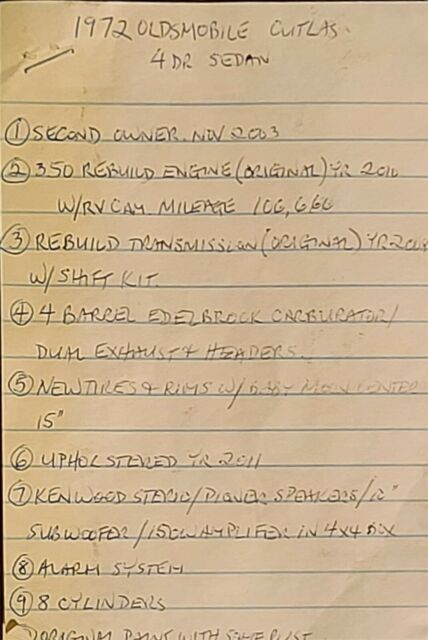 1972 OLDSMOBILE CUTLAS
4 DR SEDAN
① SECOND OWNER. NOV 2003
② 350 REBUILD ENGINE (ORIGINAL) YR 2010
W/RV CAM. MILEAGE 106,666
③ REBUILD TRANSMISSION (ORIGINAL) YR 2008
W/SHIFT KIT.
④ 4 BARREL EDELBROCK CARBURATOR/
DUAL EXHAUST & HEADERS.
⑤ NEW TIRES & RIMS W/BABY MOON CENTER
15"
⑥ UPHOLSTERED YR 2011
⑦ KENWOOD STERIO/PIONER SPEAKERS/10"
SUBWOOFER/1500W AMPLIFER IN 4X4 BOX
⑧ ALARM SYSTEM
⑨ 8 CYLINDERS
ORIGINAL PAINT WITH SOME RUST